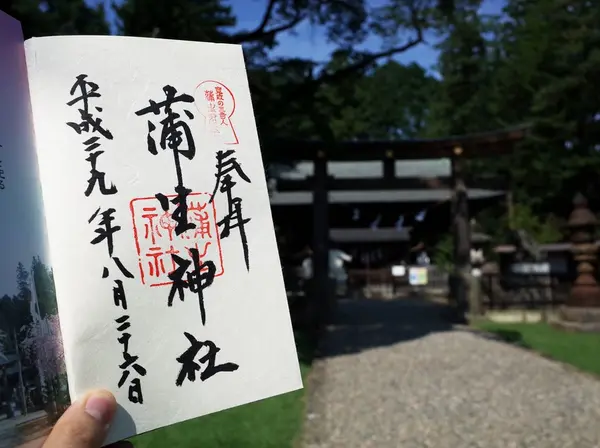 奉拝
蒲生神社
平成二十九年八月二十六日
蒲生
神社